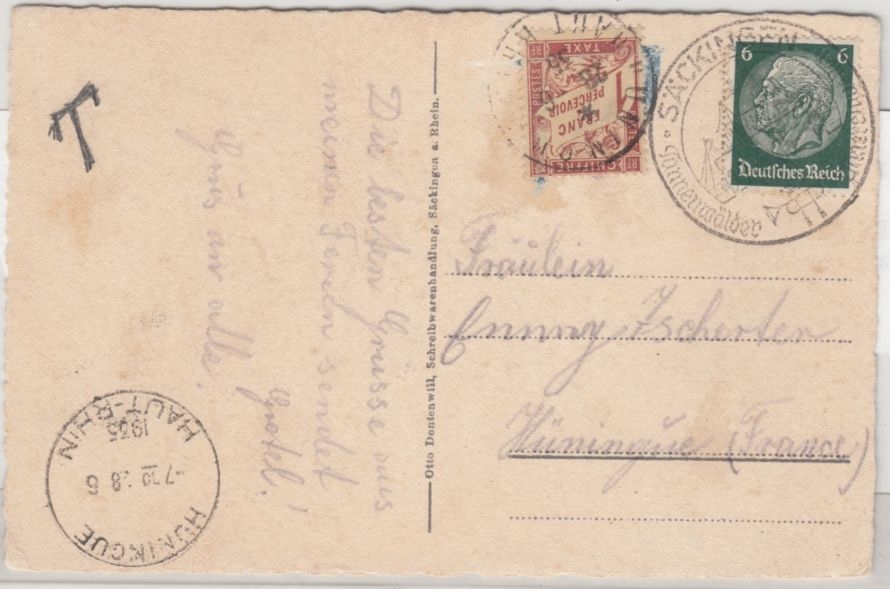 T
Die besten Grüsse aus
meinen Ferien sendet
Gretel!
Grüs an alle.
HÜNINGUE
-7 30 28 6
1935
HAUT-RHIN
Otto Dontenwill, Schreibwarenhandlung, Säckingen a. Rhein.
POSTES RF
TAXE
1 FRANC
A PERCEVOIR
CHIFFRE RF
HAUT-RHIN
28
SÄCKINGEN
Tannenwälder
6 6
Deutsches Reich
Fräulein
Emmy Tscherter
Hüningue (France)